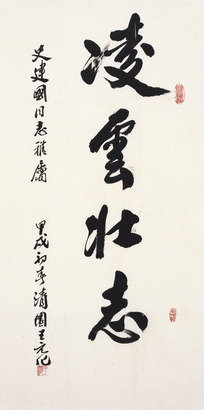 凌雲壯志
史建國同志雅屬
甲戌初春清園王元化